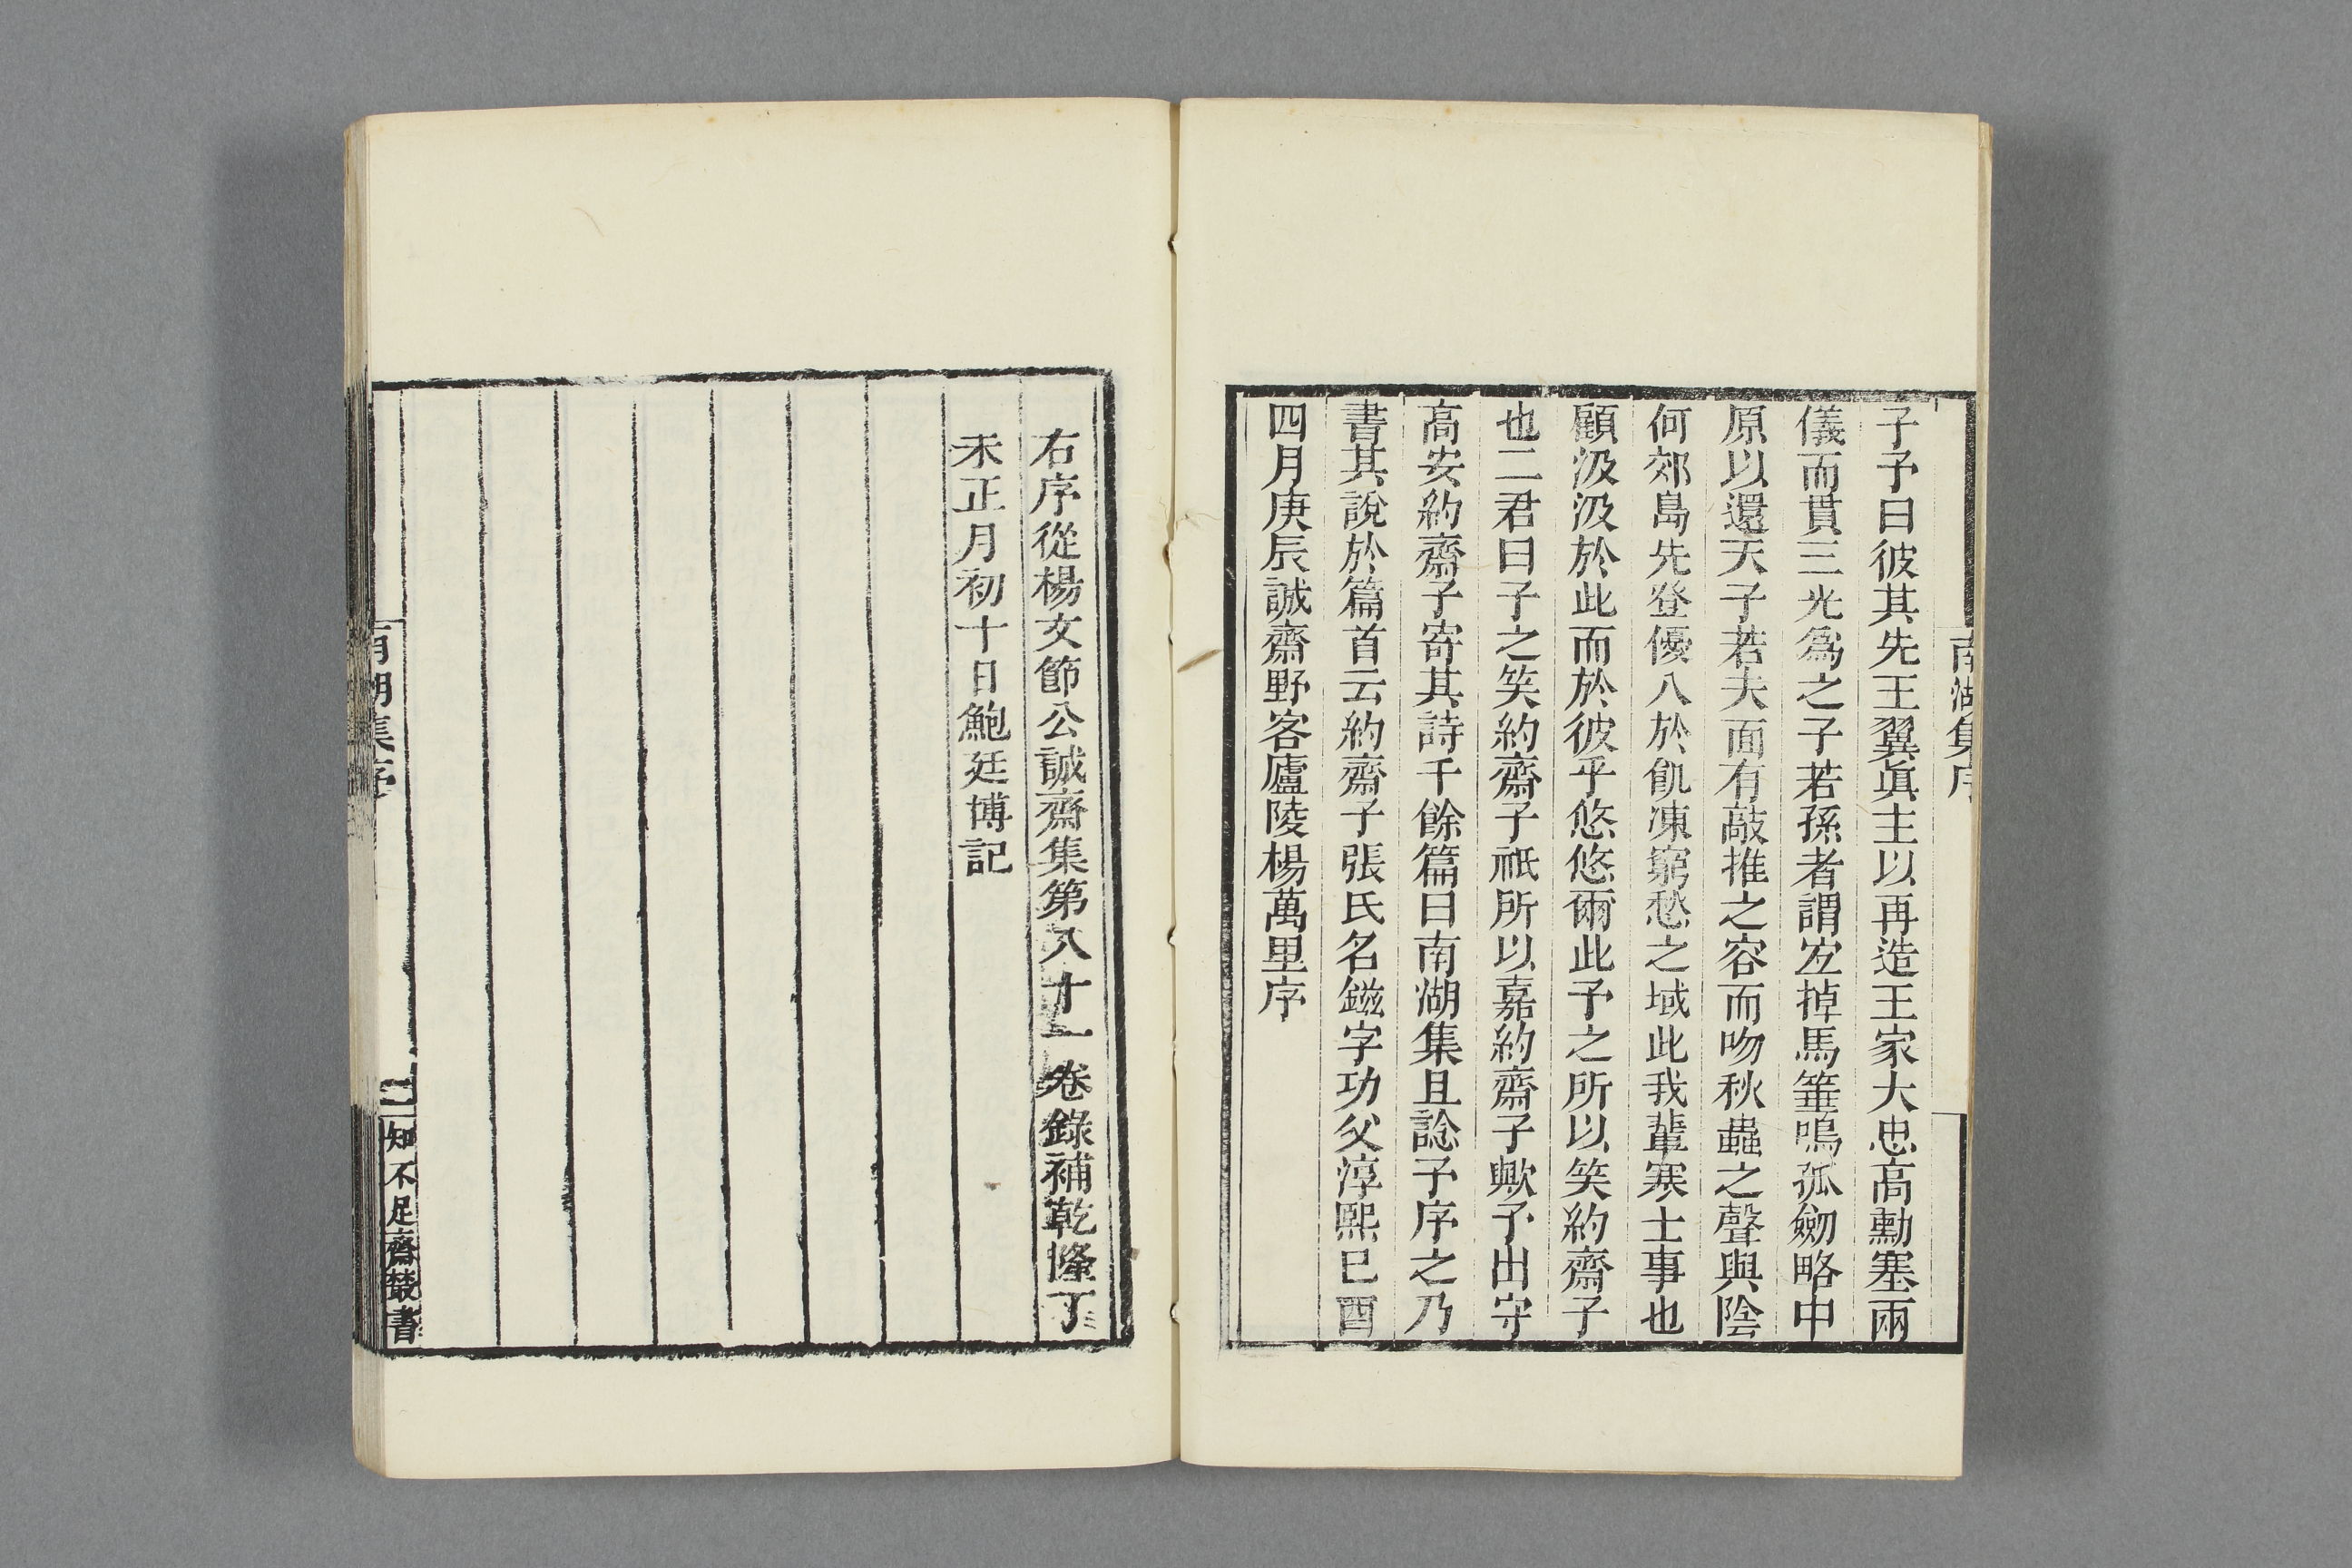 南湖集序
子予曰彼其先王翼眞主以再造王家大忠高勳塞兩
儀而貫三光爲之子若孫者謂宐掉馬箠嗚孤劒略中
原以還天子若夫面有敲推之容而吻秋蟲之聲與陰
何郊島先登優入於飢凍窮愁之域此我輩寒士事也
顧汲汲於此而於彼乎悠悠爾此予之所以笑約齋子
也二君曰子之笑約齋子祇所以嘉約齋子歟予出守
高安約齋子寄其詩千餘篇曰南湖集且諗予序之乃
書其說於篇首云約齋子張氏名鎡字功父淳熙巳酉
四月庚辰誠齋野客廬陵楊萬里序
右序從楊文節公誠齋集第八十一卷錄補乾隆丁
未正月初十日鮑廷博記
南湖集序
二
知不足齋叢書